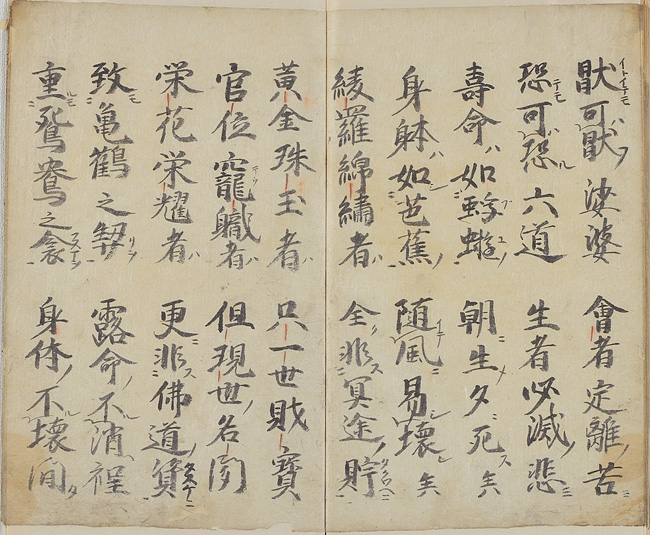 厭可厭娑婆 會者定離苦
恐可恐六道 生者必滅悲
壽命如蜉蝣 朝生夕死矣
身躰如芭蕉 随風易壊矣
綾羅綿繡者 全非冥途貯
黄金珠玉者 只一世財寳
官位寵職者 但現世名聞
栄花栄耀者 更非佛道資
致亀鶴之契 露命不消程
重鴛鴦之衾 身体不壊間